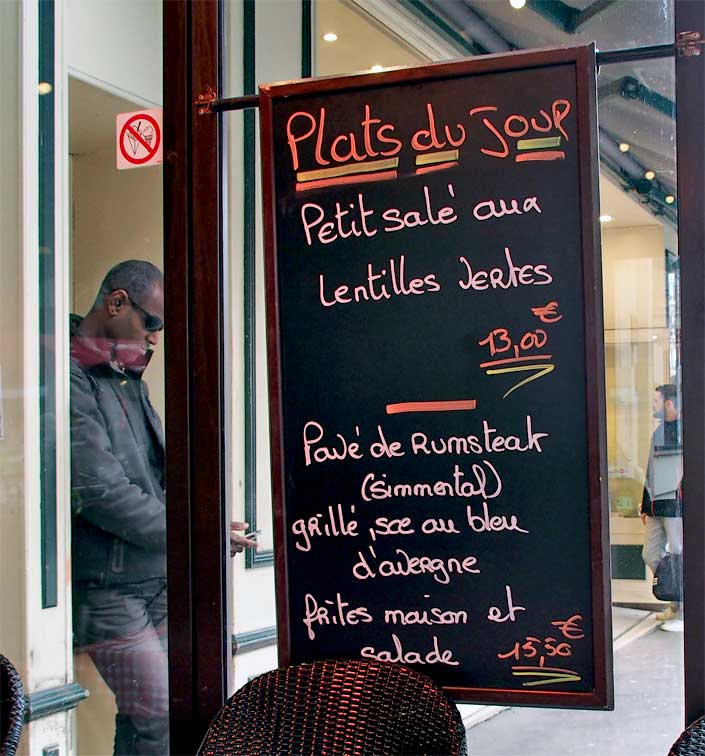 Plats du Jour
Petit salé aux
Lentilles Vertes
€
13,00
Pavé de Rumsteak
(simmental)
grillé, sce au bleu
d'avergne
frites maison et
€
salade 15,50